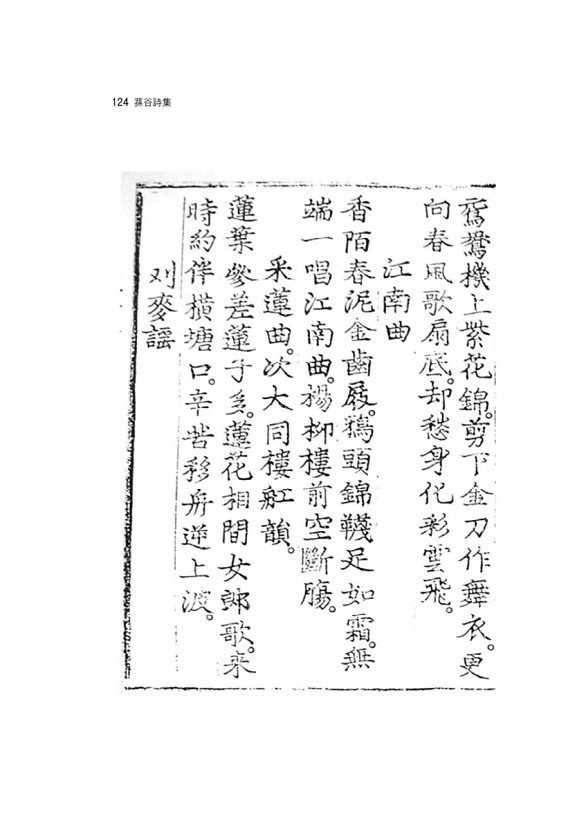 124 蓀谷詩集
鴛鴦機上紫花錦。剪下金刀作舞衣。更
向春風歌扇底。却愁身化彩雲飛。
江南曲
香陌春泥金齒屐。鵶頭錦韈足如霜。無
端一唱江南曲。楊柳樓前空斷膓。
采蓮曲。次大同樓舡韻。
蓮葉參差蓮子多。蓮花相間女郎歌。来
時約伴橫塘口。辛苦移舟逆上波。
刈麥謡